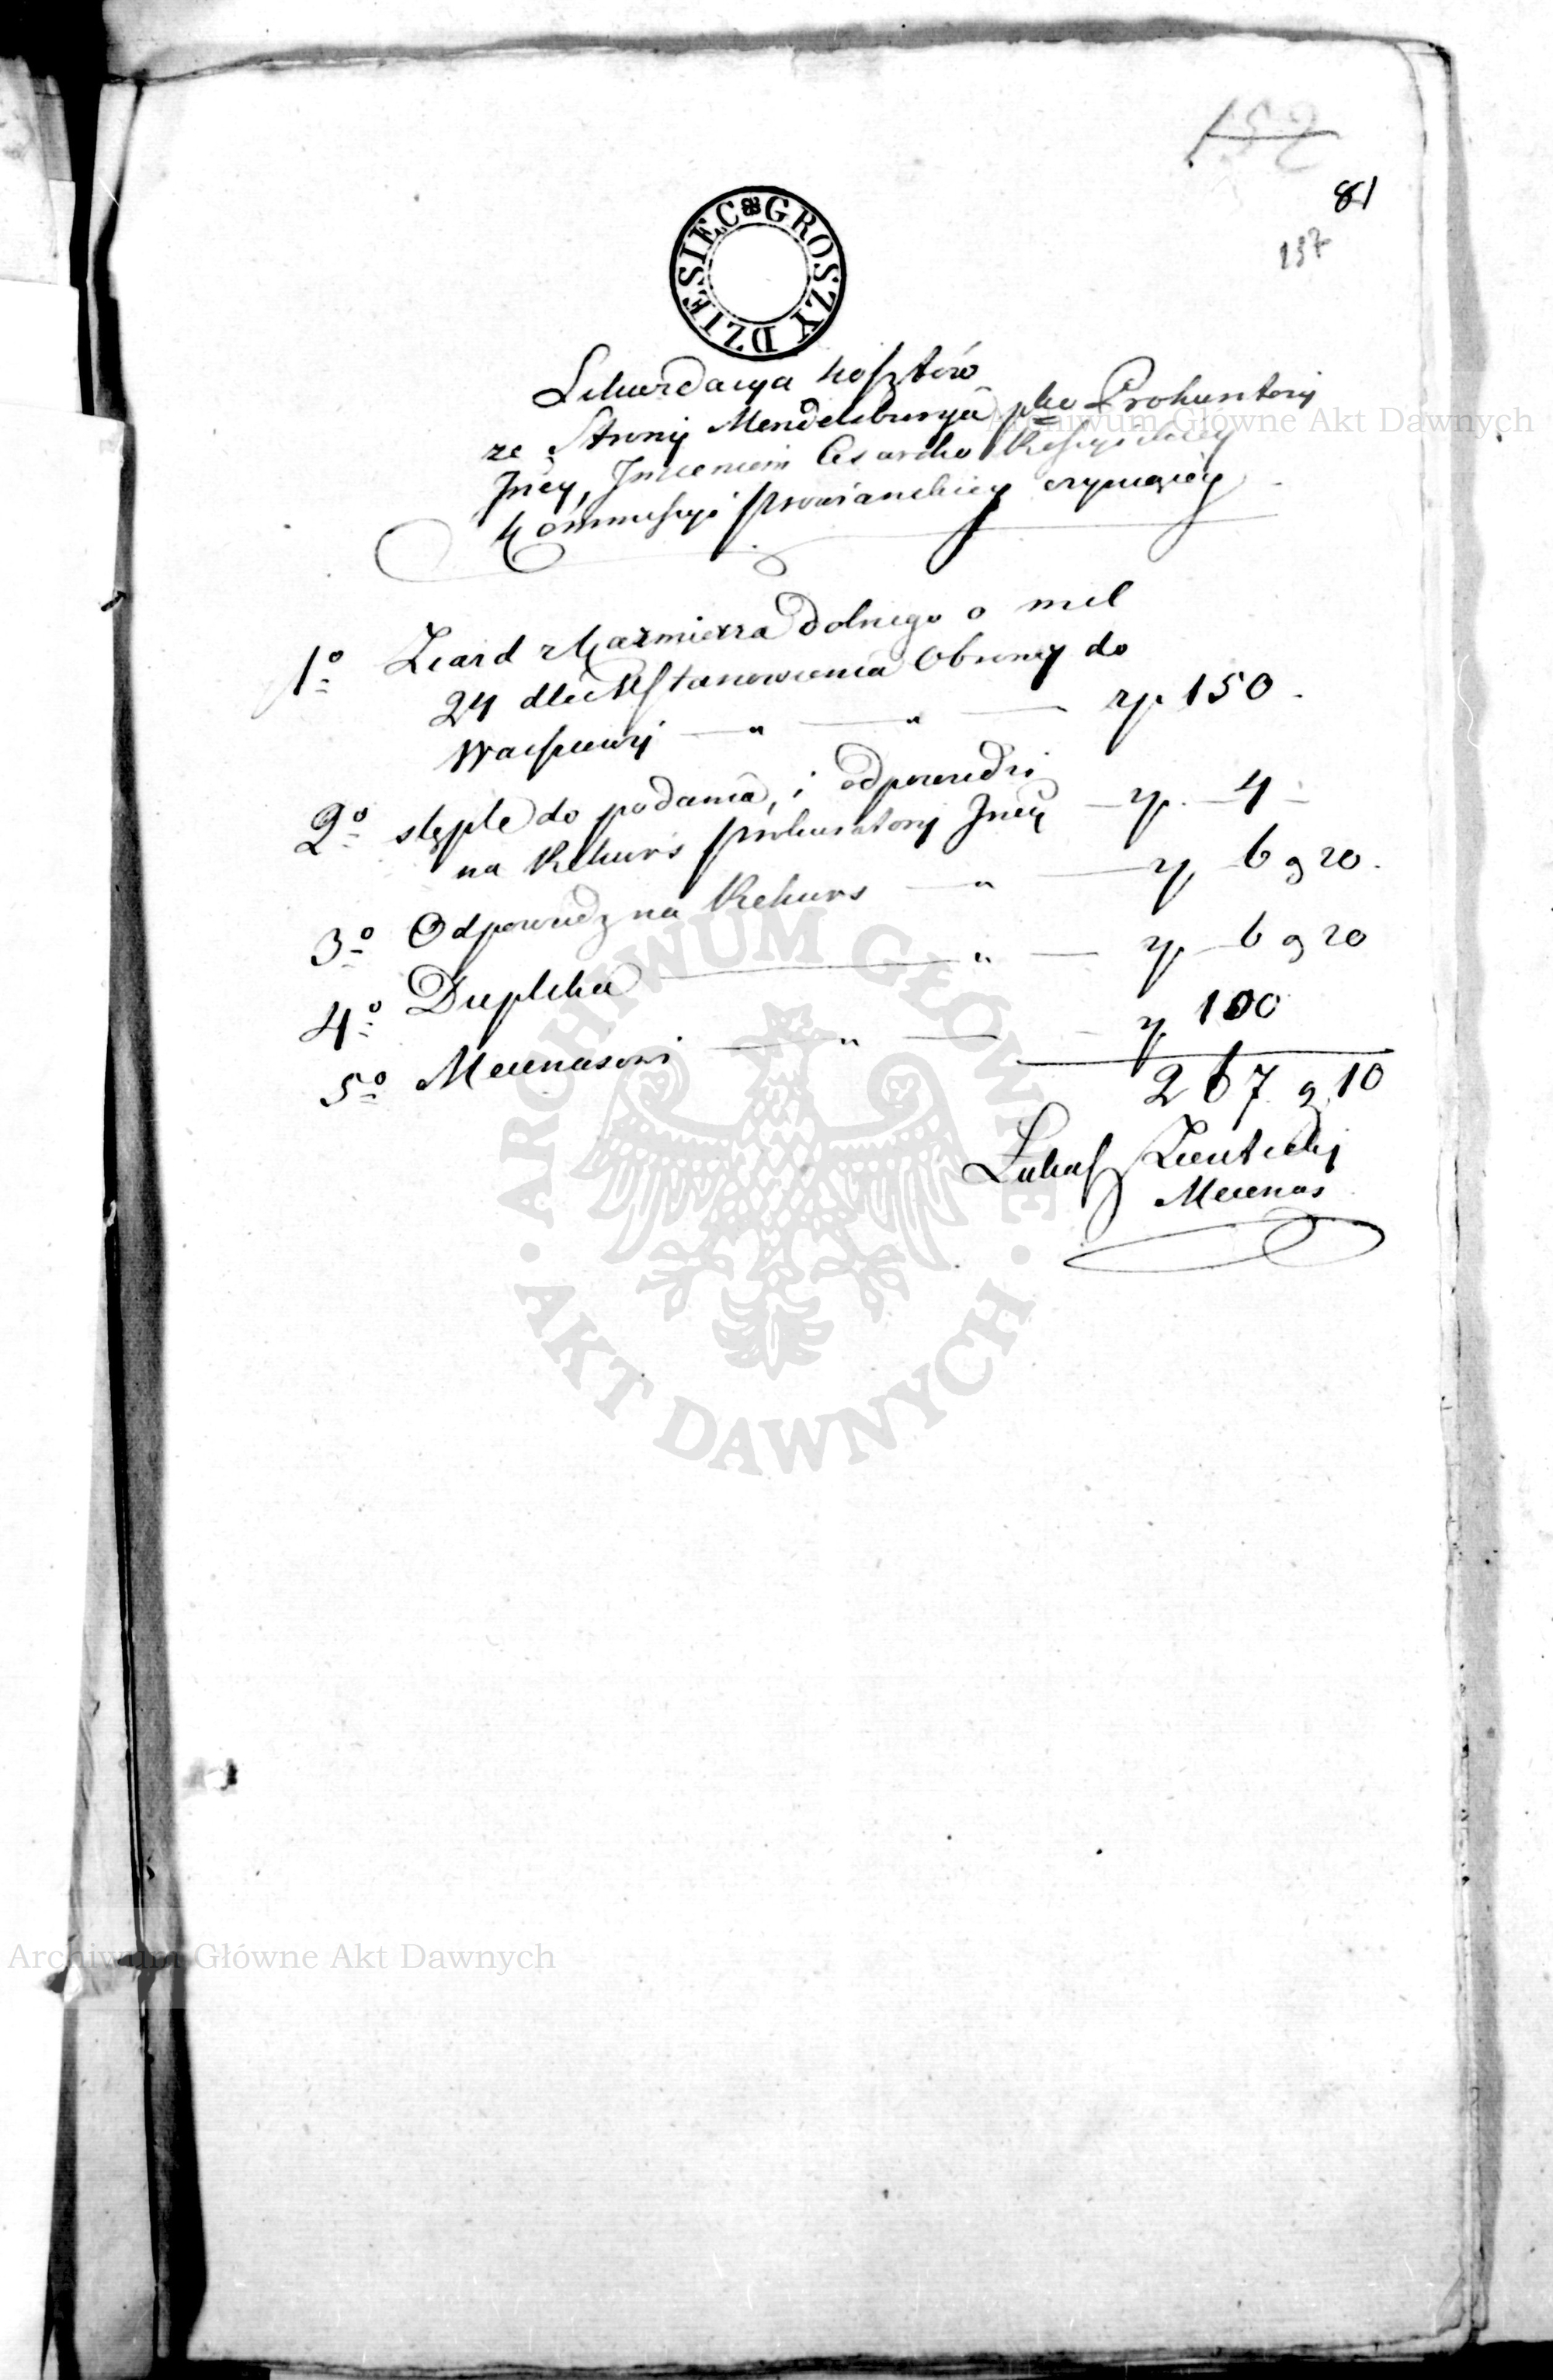 152
81
137
DZIESIEC GROSZY
Likwidacya kosztów
ze Strony Mendelsburga płko Prokuratoryi
Jnéy, Imieniem Cesarsko Rossyiskiey
Kommissyi prowianskiey czyniącéy
1º Ziazd z Kazmierza dolnego o mil
24 dla Ustanowienia Obrony do
Warszawy — " — " — zp. 150.
2º stęple do podania, i odpowiedzi
na Rekurs prokuratoryi Jnéy — zp. — 4 —
3º Odpowiedz na Rekurs — " — zp — 6 g 20.
4º Duplika — " — zp — 6 g 20
5º Mecenasowi — " — zp 100
267 g. 10
Łukasz
Mecenas
Archiwum Główne Akt Dawnych
ARCHIWUM GŁÓWNE · AKT DAWNYCH ·
Archiwum Główne Akt Dawnych